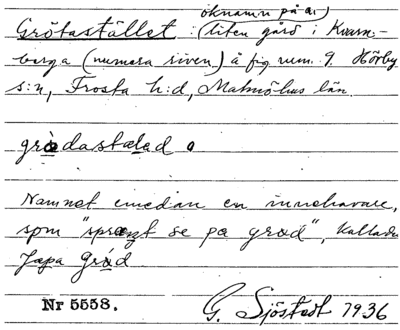 öknamn på en
Grötastället : (liten gård i Kvarn-
berga (numera riven) å fig. num. 9. Hörby
s:n, Frosta h:d, Malmöhus län.
grødastælad
Namnet emedan en innehavare,
som "sprængt se på grød", kallades
Japa Grød
Nr 5558.
G. Sjöstedt 1936